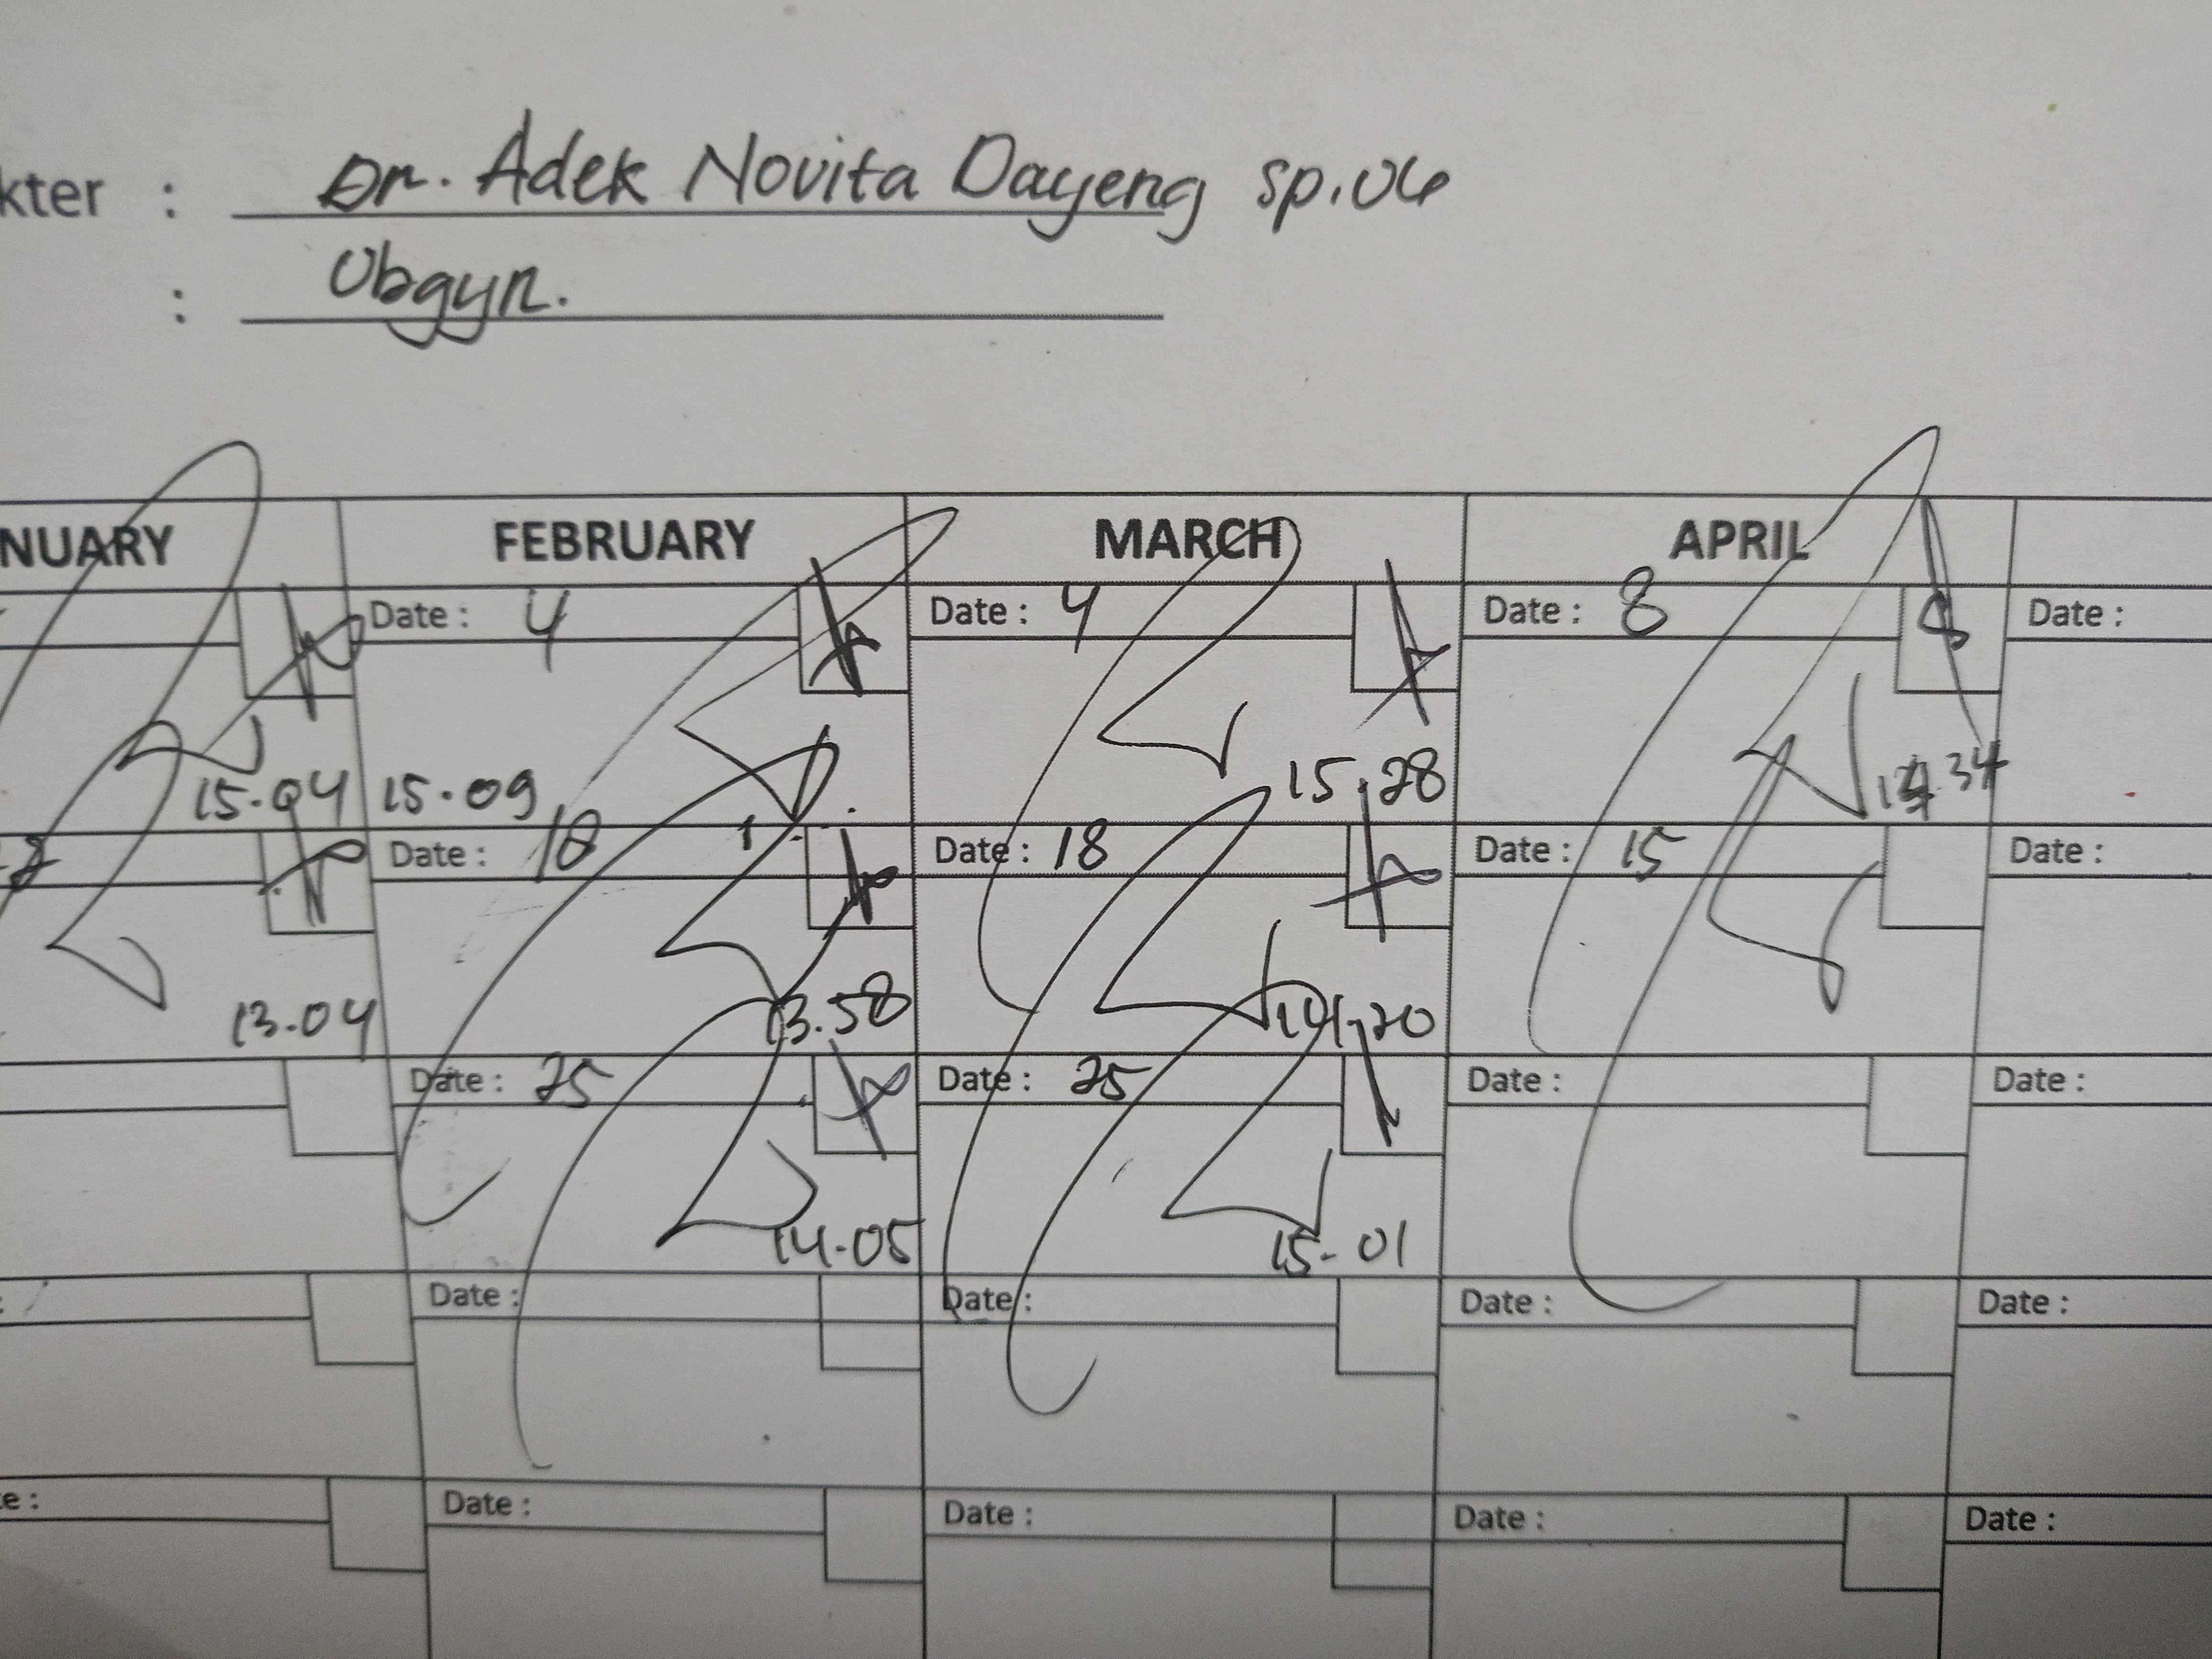 kter : Dr. Adek Novita Dayeng sp.OG
: Obgyn.
NUARY FEBRUARY MARCH APRIL
Date : 4 Date : 4 Date : 8 Date :
15.04 15.09 15.28 34
Date : 18 Date : 18 Date : 15 Date :
13.04 13.58 14.20
Date : 25 Date : 25 Date : Date :
14.05 15-01
Date : Date : Date : Date :
e : Date : Date : Date : Date :